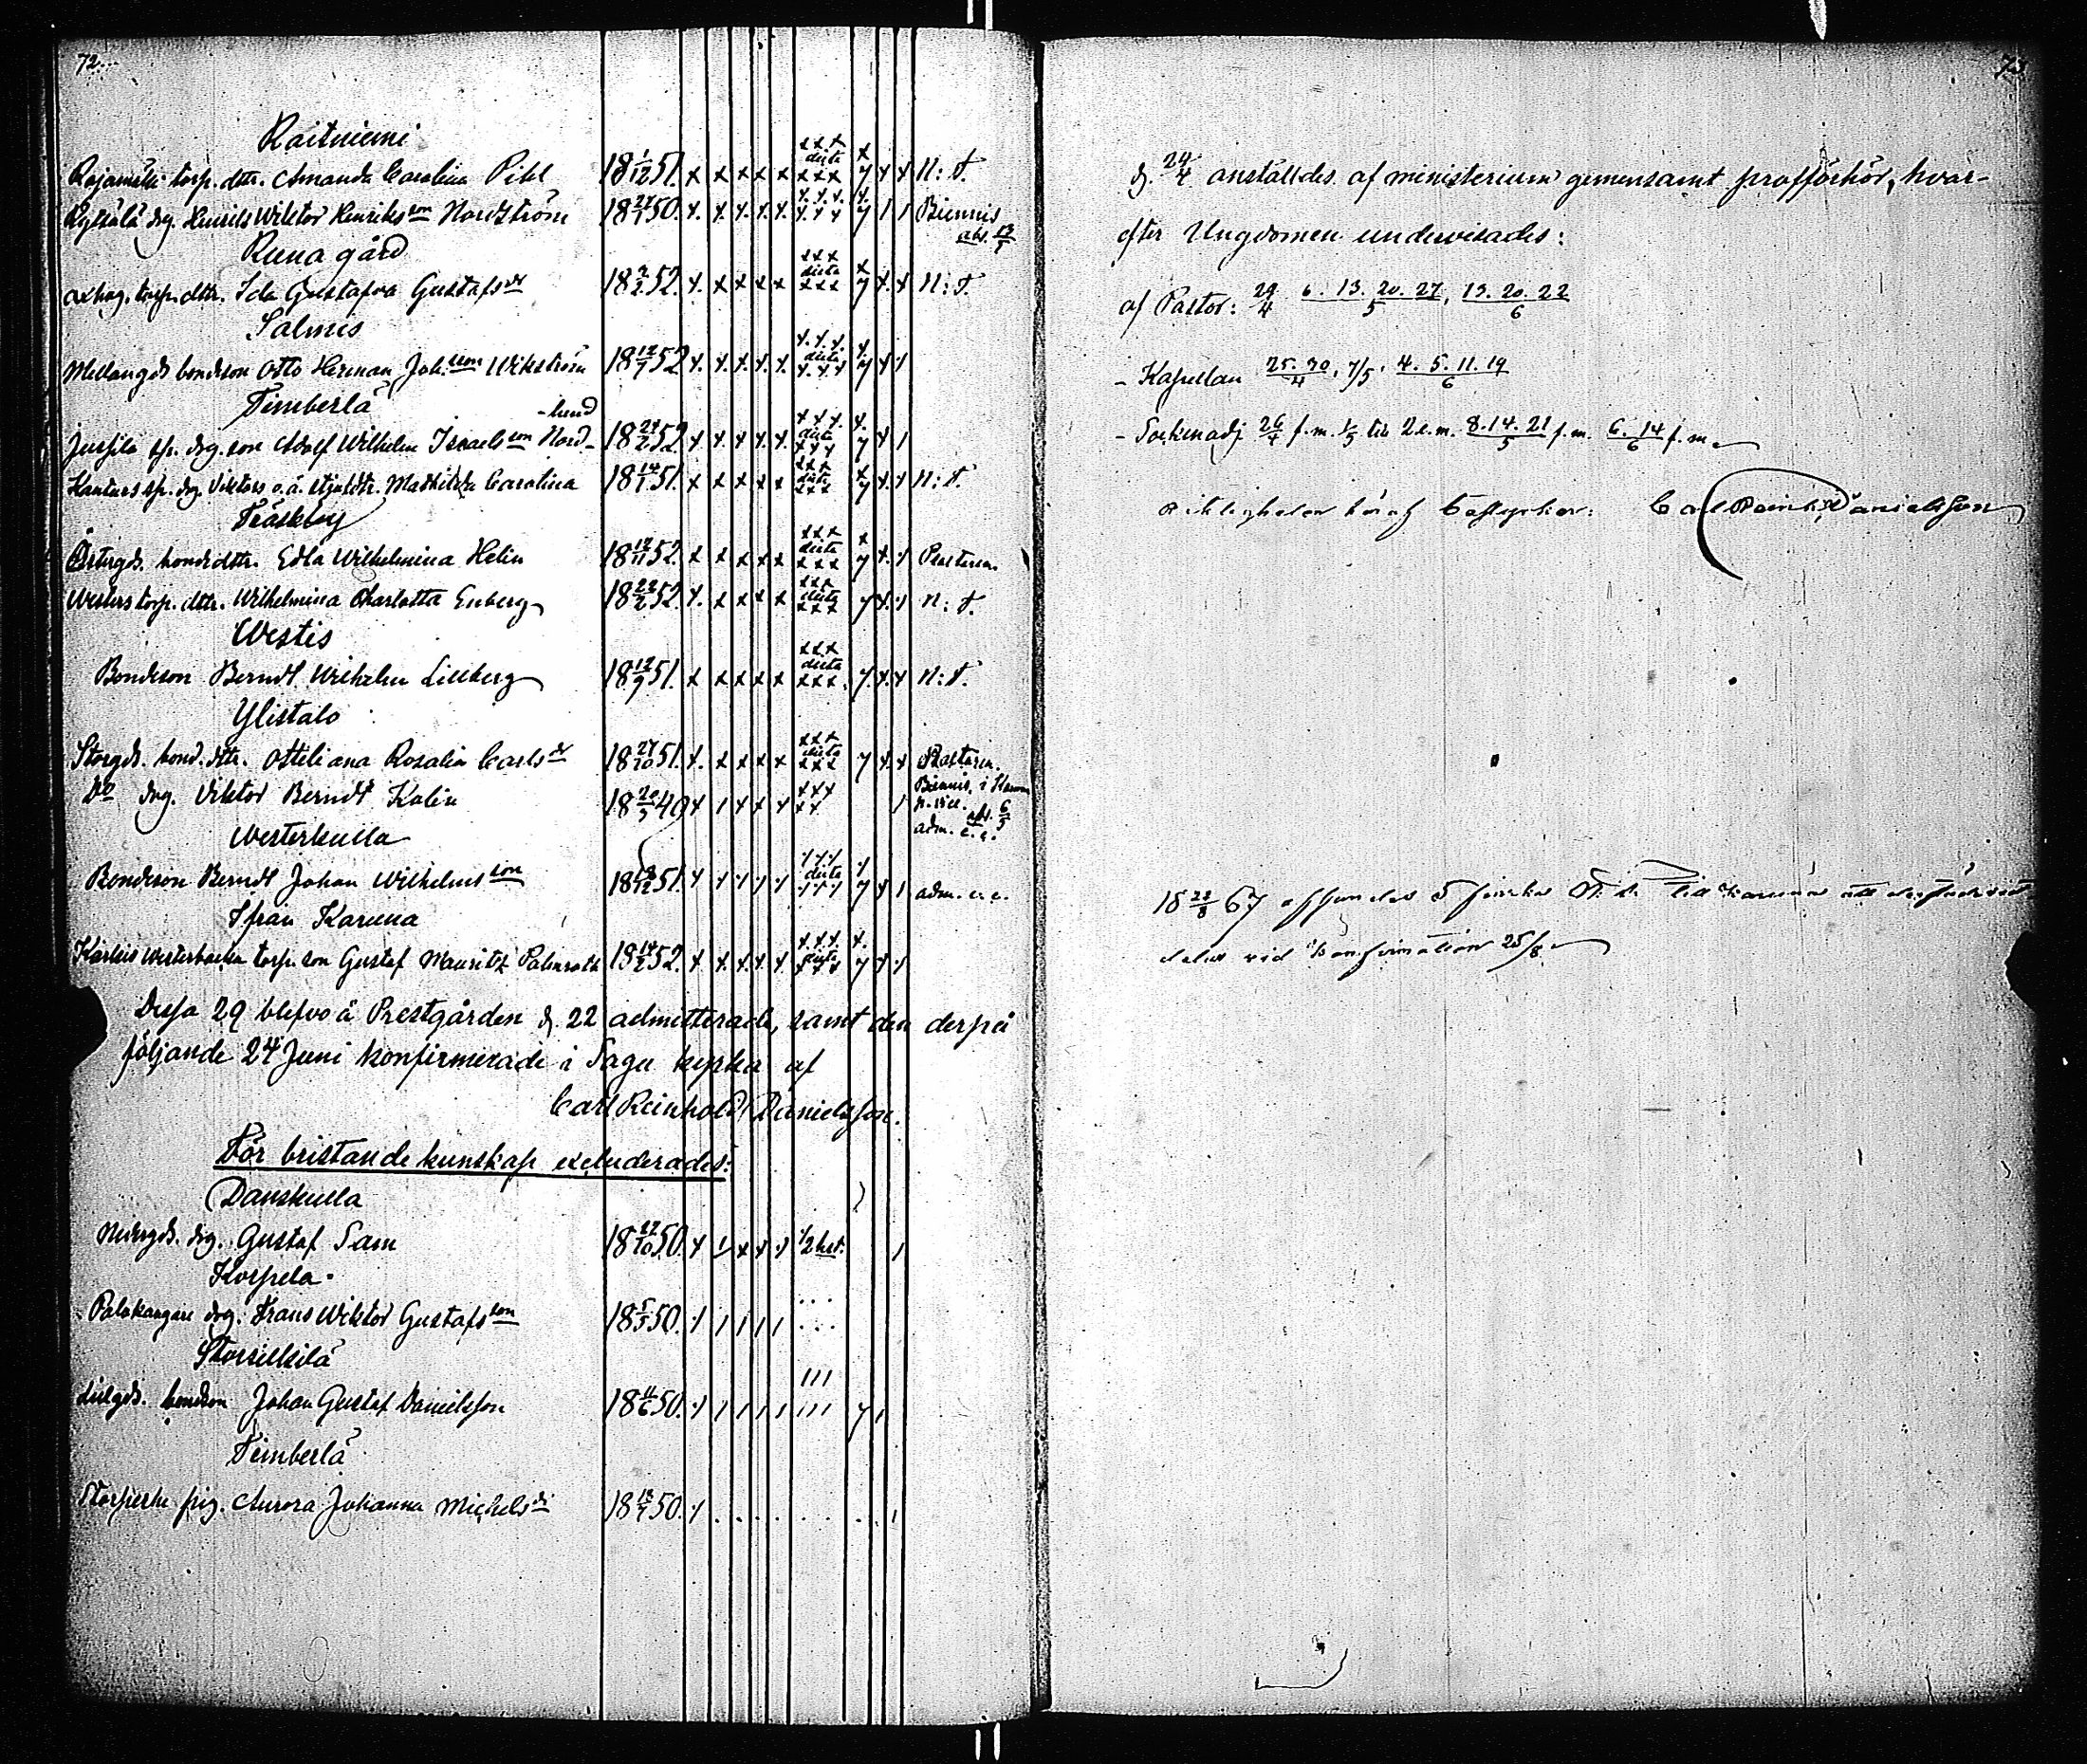 72
Raitniemi
Rajamäki torp. dttr. Amanda Carolina Pihl 18 1/12 51. x x x x x xxx dicta xxx x 7 x x N: T.
Kylsälä drg. Henrik Wiktor Henriksson Nordström 18 27/1 50. x. x. x. x. x. x.x.x. x x x x. 7 1 1 Biennis
abs. 13/5
Runa gård
torp. dttr. Ida Gustafva Gustafsdr 18 2/2 52. x. x x x x xxx dicta xxx x 7 x. x N: T.
Salmis
Mellangds bondson Otto Herman Joh.son Wikström 18 12/7 52 x. x. x. x. x. x.x.x. dicta x.x.x x. 7 x 1
Timberlä
-lund
Jussila sp. drg. son Adolf Wilhelm Israelsson Nord- 18 24/2 52. x. x x x x. x x x. dicta x x x x. 7 x 1
sp. drg. Viktors o. ä. stjufdtr. Mathilda Carolina 18 14/1 51. x x x x x xxx dicta xxx x 7 x. x N: T.
Träskby
Östergds. bondedttr. Edla Wilhelmina Helin 18 12/11 52. x x x x x xxx dicta xxx x 7 x. 1
Westers torp. dttr. Wilhelmina Charlotta Enberg 18 22/2 52. x. x x x x xxx dicta xxx 7 x. 1 N: T.
Westis
Bondeson Berndt Wilhelm Lillberg 18 12/9 51. x x x x x xxx dicta xxx. 7. x. x N: T.
Ylistalo
Storgds. bond. dttr. Ottiliana Rosalia Carlsdr 18 27/10 51. x. x x x x xxx dicta xxx 7 x. x
Do drg. Viktor Berndt Kalin 18 20/5 49 x 1 x x x xxx xx 1 Biennis, i
abs. 6/5
adm. e. c.
Westerkulla
Bondeson Berndt Johan Wilhelmsson 18 18/12 51. x x x x x x x x dicta x x x x 7 x 1 adm. e. c.
Ifrån Karuna
Karkis Westerbacka torp. son Gustaf Mauritz Palmroth 18 14/2 52. x x. x. x. x x.x.x. dicta x x x x. 7 x 1
Dessa 29 blefvo å Prestgården d. 22 admitterade, samt den derpå
följande 24 Juni konfirmerade i Sagu kyrka af
Carl Reinhold Danielsson.
För bristande kunskap excluderades:
Danskulla
Nedergds. drg. Gustaf Sam 18 22/10 50. x 1 x x x 1/2 kat. 1
Korpela.
Palokangare drg. Frans Wiktor Gustafsson 18 5/5 50. 1 1 1 1 1 ... ...
Storsilkilä
Lillgds. bondson Johan Gustaf Danielsson 18 11/6 50. 1 1 1 1 1 111 111 7 1
Timberlä
Storperhe pig. Aurora Johanna Michelsdr 18 18/7 50. 1 . . . . . . . . 1
73
d. 24/4 anställdes af ministerium gemensamt profförhör, hvar-
efter Ungdomen undervisades:
af Pastor: 29/4 6. 13. 20. 27/5, 13. 20. 22/6
- Kapellan 25. 30/4, 7/5, 4. 5. 11. 19/6
- Sockenadj 26/4 f. m. 1/5 till 2 e. m. 8. 14. 21/5 f. m. 6. 14/6 f. m.
Riktigheten häraf bestyrker: Carl Reinh. Danielsson
18 22/8 67 5 till Karuna att
delas vid Konfirmation 25/8